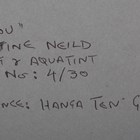 OU"
TINE NEILD
& AQUATINT
No: 4/30
NCE: HANGA TEN